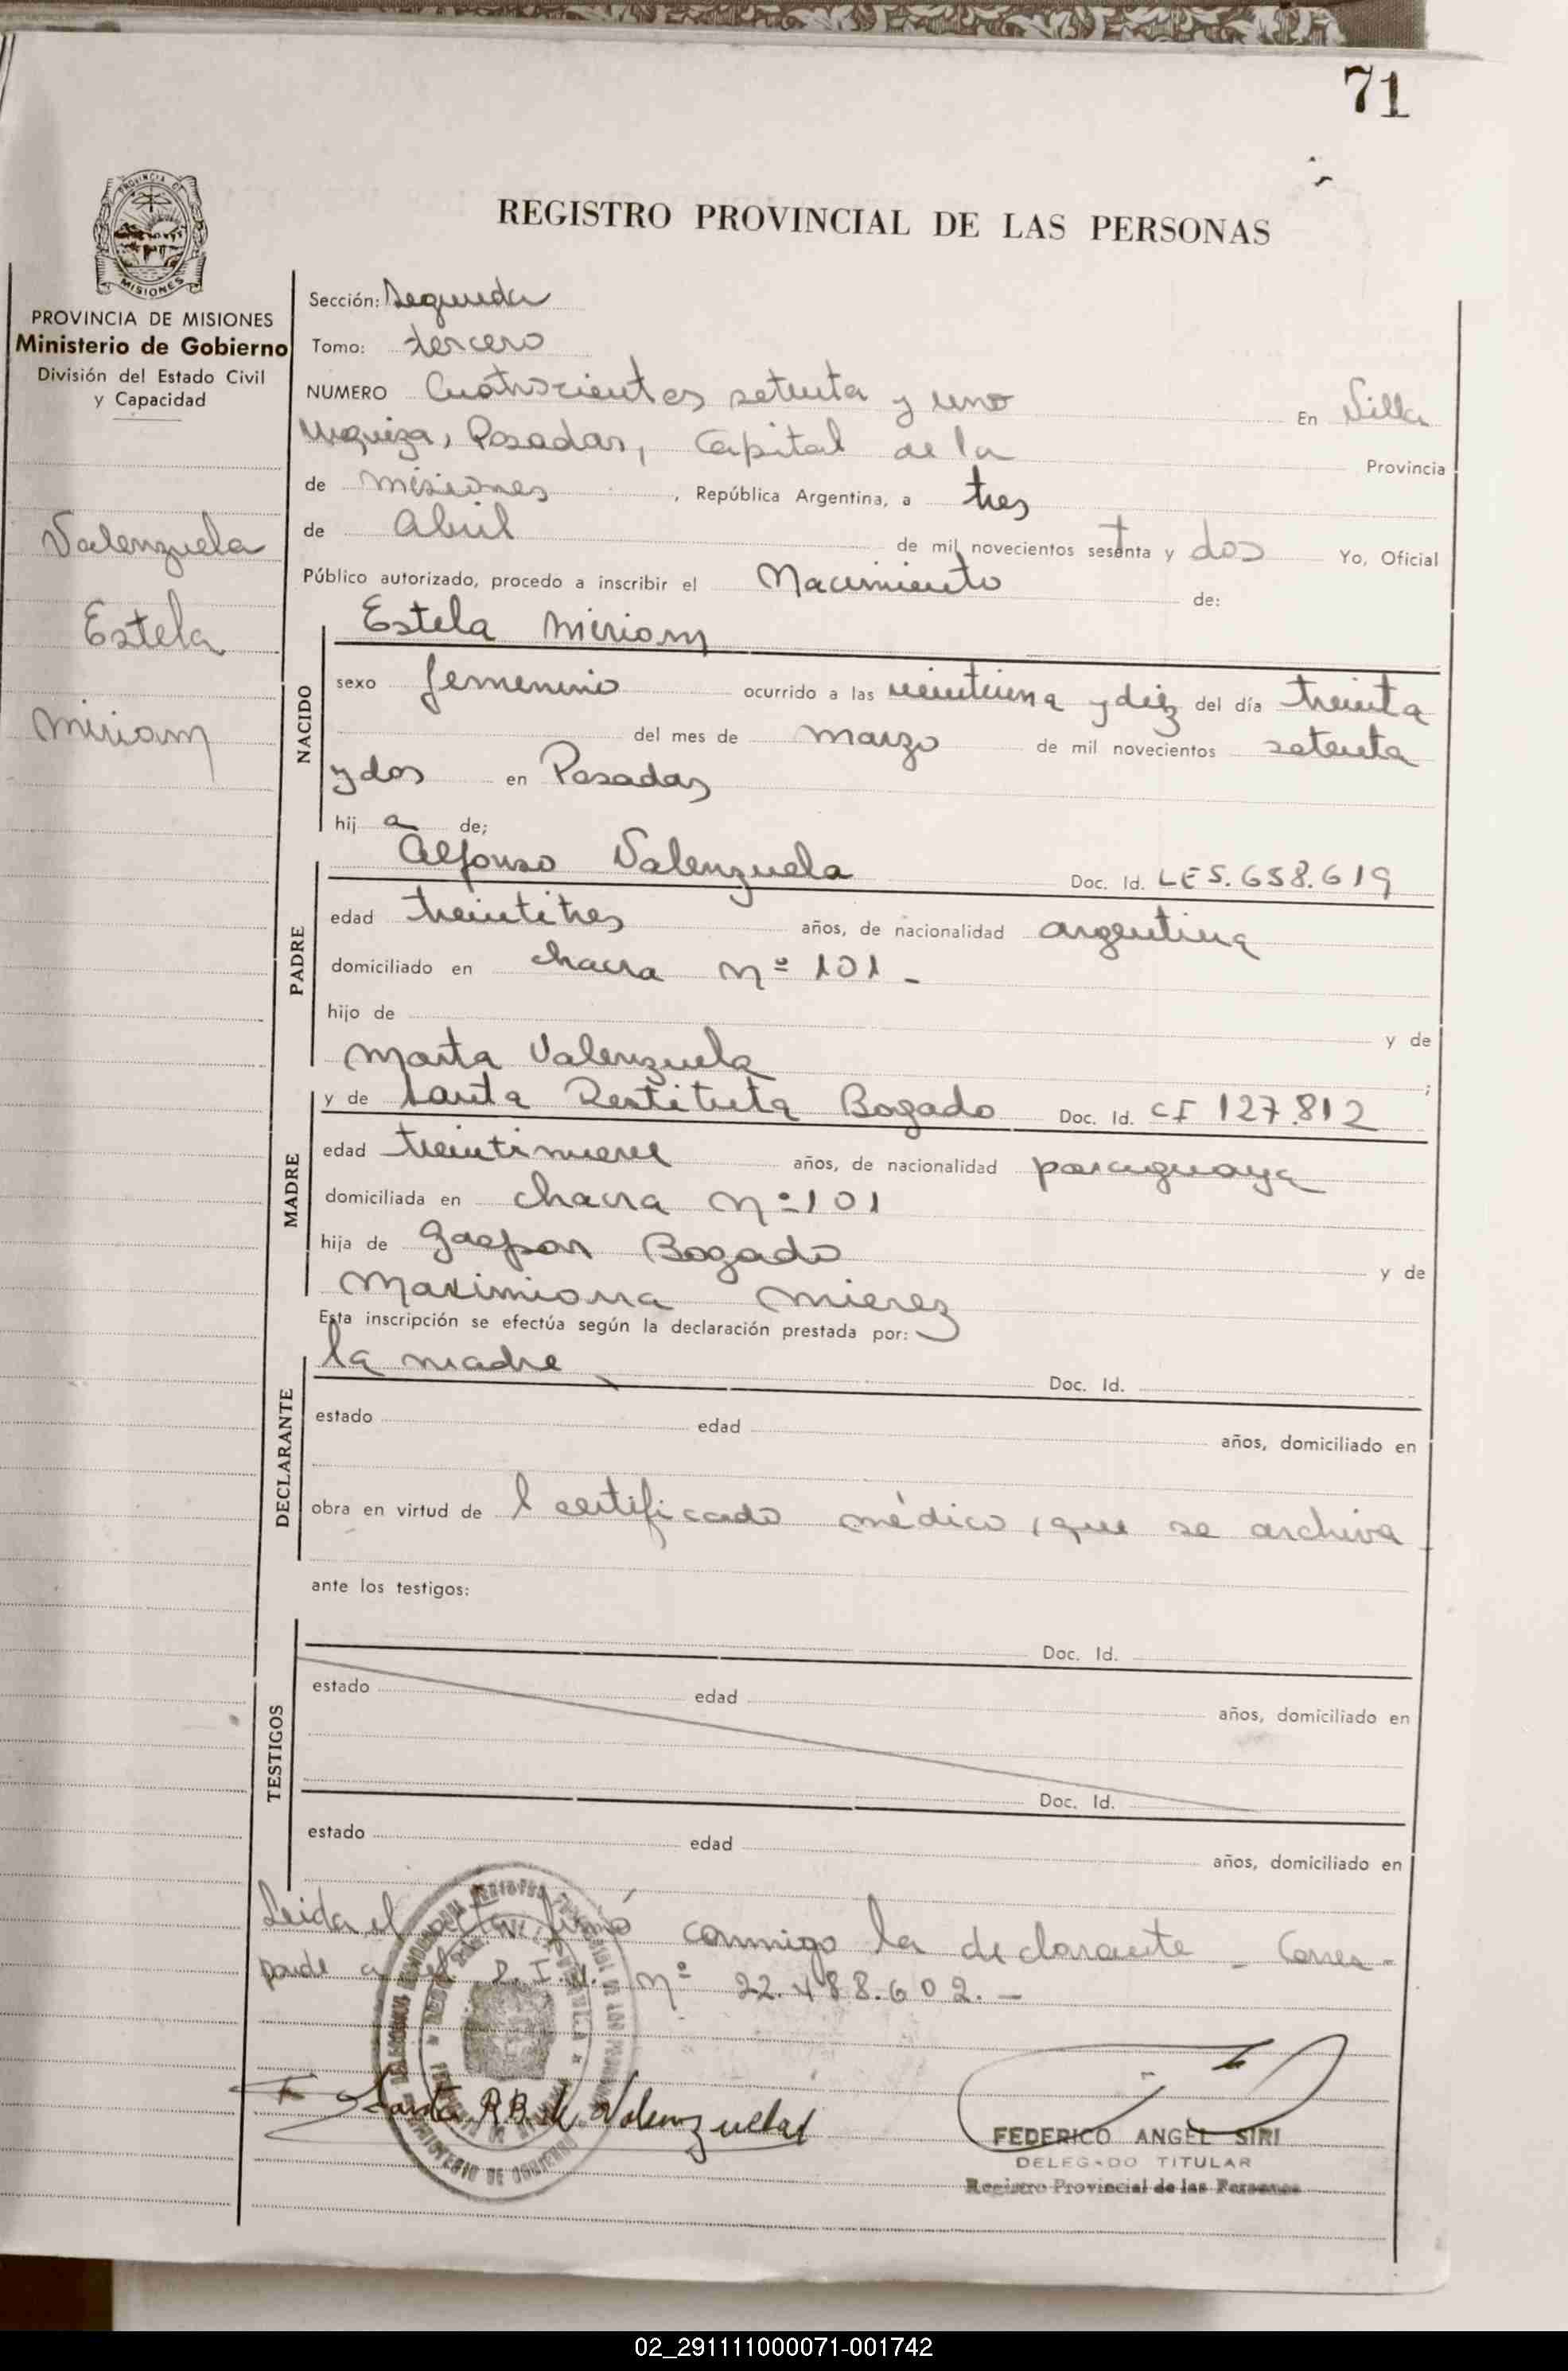 71
REGISTRO PROVINCIAL DE LAS PERSONAS
PROVINCIA DE MISIONES
MISIONES
PROVINCIA DE MISIONES
Ministerio de Gobierno
División del Estado Civil
y Capacidad
Valenzuela
Estela
Miriam
Sección: Segunda
Tomo: tercero
NUMERO Cuatrocientos setenta y uno En Villa
Urquiza, Posadas, Capital de la Provincia
de Misiones, República Argentina, a tres
de Abril de mil novecientos setenta y dos Yo, Oficial
Público autorizado, procedo a inscribir el Nacimiento de:
Estela Miriam
NACIDO
sexo femenino ocurrido a las veintiuna y diez del día treinta
del mes de marzo de mil novecientos setenta
y dos en Posadas
hij a de;
PADRE
Alfonso Valenzuela Doc. Id. LE 5.658.619
edad treintitres años, de nacionalidad argentina
domiciliado en chacra nº 101 -
hijo de y de
Marta Valenzuela ;
MADRE
y de Santa Restituta Bogado Doc. Id. CI 127.812
edad treintinueve años, de nacionalidad paraguaya
domiciliada en chacra nº 101
hija de Gaspar Bogado y de
Maximiana Mierez
Esta inscripción se efectúa según la declaración prestada por:
DECLARANTE
la madre Doc. Id.
estado edad años, domiciliado en
obra en virtud de l certificado médico, que se archiva
ante los testigos:
TESTIGOS
Doc. Id.
estado edad años, domiciliado en
Doc. Id.
estado edad años, domiciliado en
Leida el acta firmó conmigo la declarante - Corres-
ponde a el D.I.N. nº 22.488.602. -
Santa R.B. de Valenzuela
FEDERICO ANGEL SIRI
DELEGADO TITULAR
Registro Provincial de las Personas
02_291111000071-001742